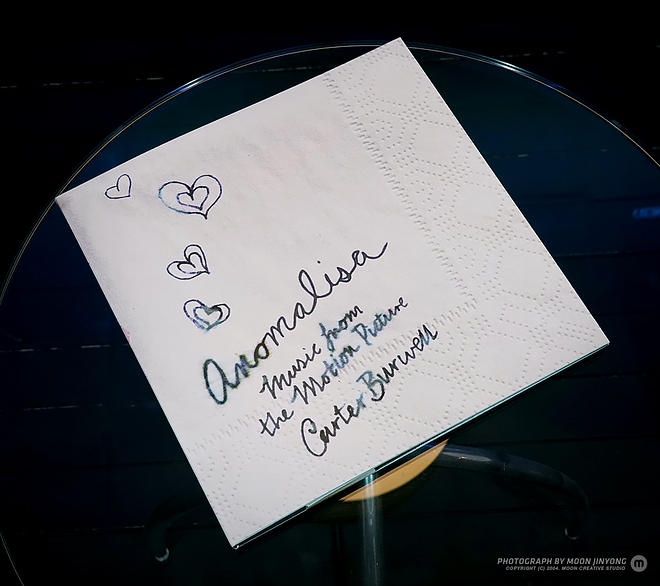 Anomalisa
Music from
the Motion Picture
Carter Burwell
PHOTOGRAPH BY MOON JINYONG
COPYRIGHT (C) 2004. MOON CREATIVE STUDIO
m